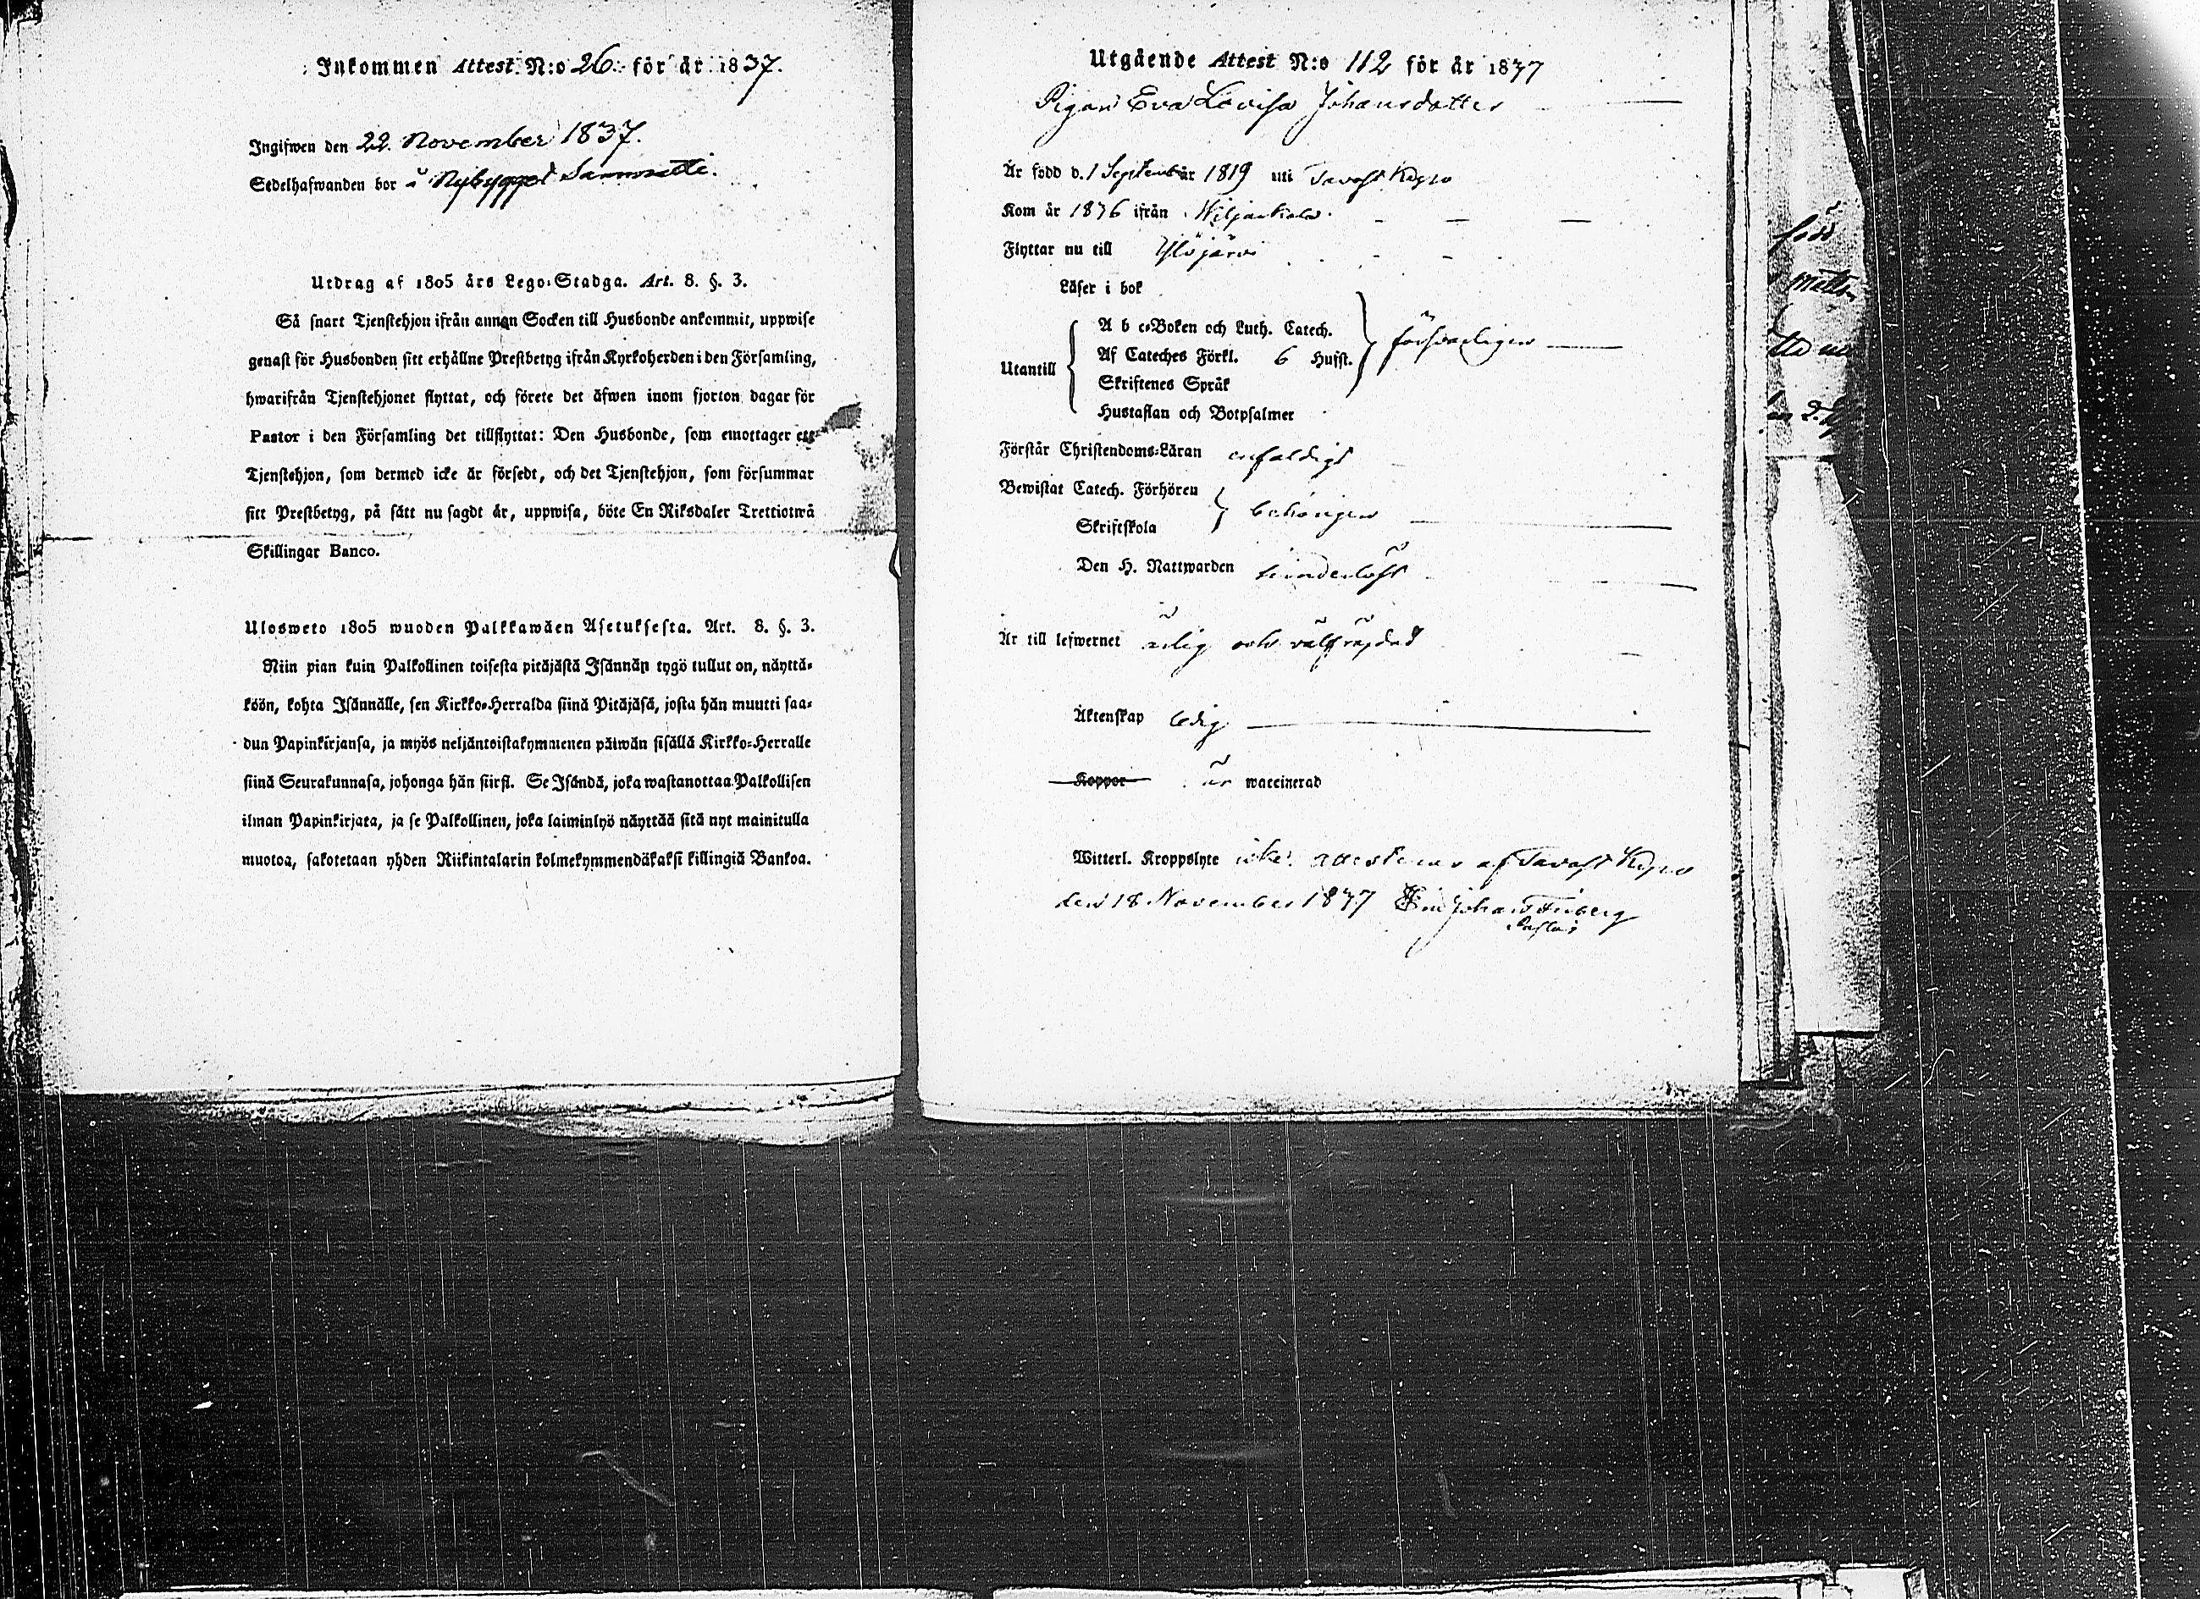 Inkommen Attest N:o 26. för år 1837.
Ingifwen den 22. November 1837.
Sedelhafwanden bor å Nybygget
Utdrag af 1805 års Lego-Stadga. Art. 8. §. 3.
Så snart Tjenstehjon ifrån annan Socken till Husbonde ankommit, uppwise
genast för Husbonden sitt erhållne Prestbetyg ifrån Kyrkoherden i den Församling,
hwarifrån Tjenstehjonet flyttat, och förete det äfwen inom fjorton dagar för
Pastor i den Församling det tillflyttat: Den Husbonde, som emottager ett
Tjenstehjon, som dermed icke är försedt, och det Tjenstehjon, som försummar
sitt Prestbetyg, på sätt nu sagdt är, uppwisa, böte En Riksdaler Trettiotwå
Skillingar Banco.
Ulosweto 1805 wuoden Palkkawäen Asetuksesta. Art. 8. §. 3.
Niin pian kuin Palkollinen toisesta pitäjästä Isännän tygö tullut on, näyttä-
köön, kohta Isännälle, sen Kirkko-Herralda siinä Pitäjäsä, josta hän muutti saa-
dun Papinkirjansa, ja myös neljäntoistakymmenen päiwän sisällä Kirkko-Herralle
siinä Seurakunnasa, johonga hän siirsi. Se Isändä, joka wastanottaa Palkollisen
ilman Papinkirjata, ja se Palkollinen, joka laiminlyö näyttää sitä nyt mainitulla
muotoa, sakotetaan yhden Riikintalarin kolmekymmendäkaksi killingiä Bankoa.
Utgående Attest N:o 112 för år 1837
Pigan Eva Lovisa Johansdotter
Är född d. 1 September år 1819 uti Tavast Kyro
Kom år 1836 ifrån Wiljakkala
Flyttar nu till Ylöjärvi
Läser i bok
Utantill
A b c-Boken och Luth. Catech.
Af Cateches Förkl. 6 Hufst.
Skriftenes Språk
Hustaflan och Botpsalmer
försvarligen
Förstår Christendoms-Läran enfaldigt
Bewistat Catech. Förhören
Skriftskola
behörigen
Den H. Nattwarden hinderlöst
Är till lefwernet ärlig och välfräjdad
Äktenskap ledig
Koppor är waccinerad
Witterl. Kroppslyte icke. attesterar af Tavast Kyro
den 18 November 1837 Johan
Pastor
född